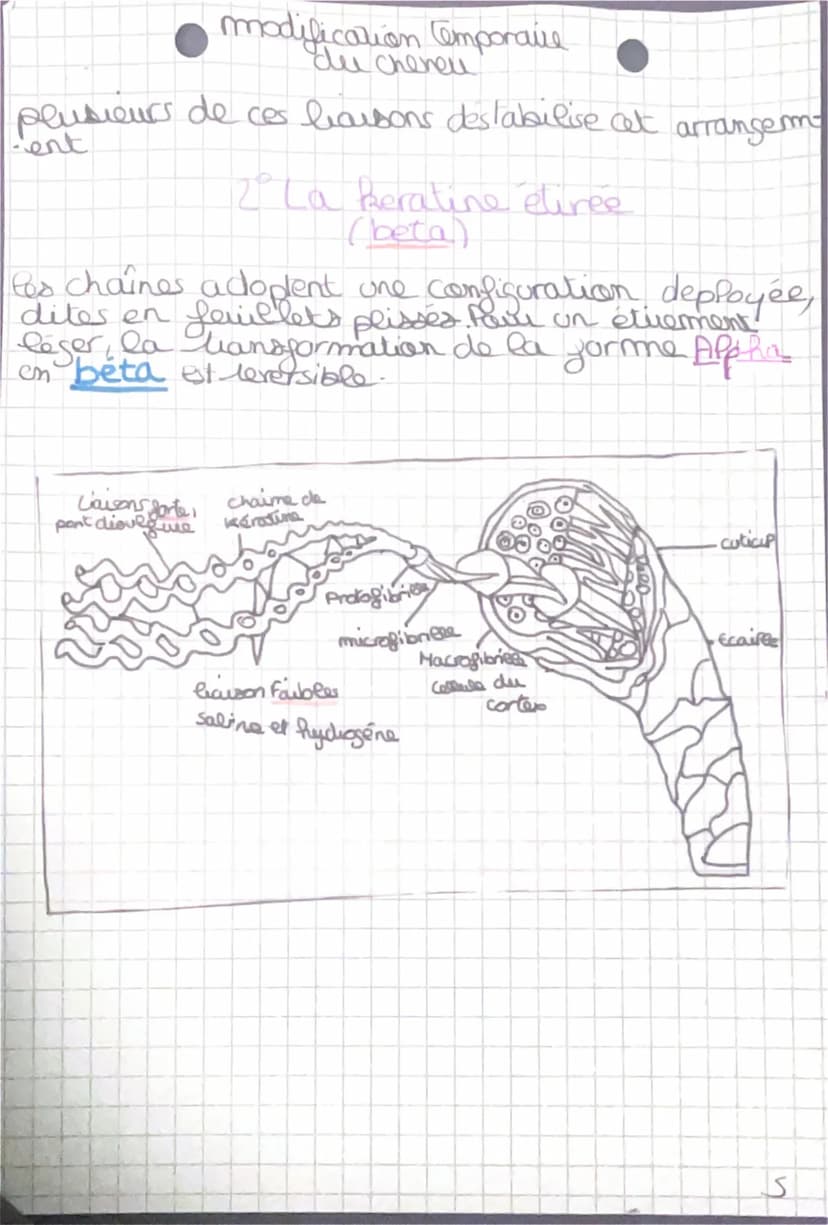 modification temporaire
du cheveu
plusieurs de ces liaisons déstabilise cet arrangem-
-ent
2° La Keratine étirée
(beta)
les chaînes adoptent une configuration deployée,
dites en feuillets plissés. Pour un étirement
léger, la transformation de la forme Alpha
en béta est reversible.
Liaisons forte,
pont
chaine de
kératine
cuticul
Protofibrilles
microfibrilles
Ecailles
Macrofibrilles
du
cortex
liaison Faibles
saline et hydrogéne
5